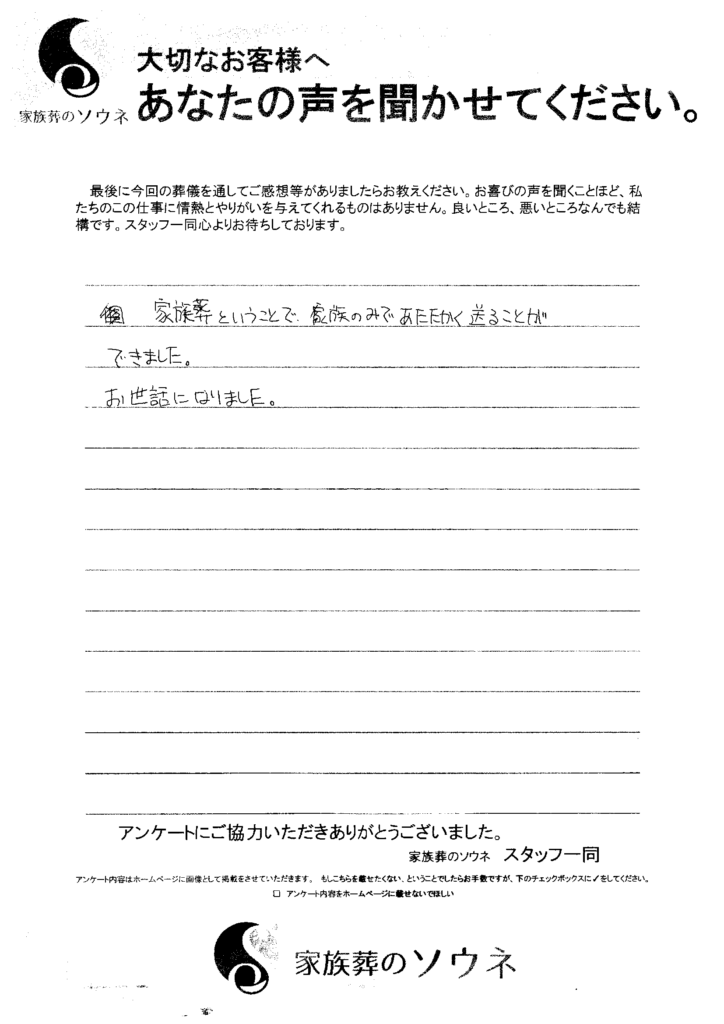 家族葬のソウネ
大切なお客様へ
あなたの声を聞かせてください。
最後に今回の葬儀を通してご感想等がありましたらお教えください。お喜びの声を聞くことほど、私
たちのこの仕事に情熱とやりがいを与えてくれるものはありません。良いところ、悪いところなんでも結
構です。スタッフ一同心よりお待ちしております。
家族葬ということで、家族のみであたたかく送ることが
できました。
お世話になりました。
アンケートにご協力いただきありがとうございました。
家族葬のソウネ スタッフ一同
アンケート内容はホームページに画像として掲載をさせていただきます。 もしこちらを載せたくない、ということでしたらお手数ですが、下のチェックボックスに✓をしてください。
□ アンケート内容をホームページに載せないでほしい
家族葬のソウネ